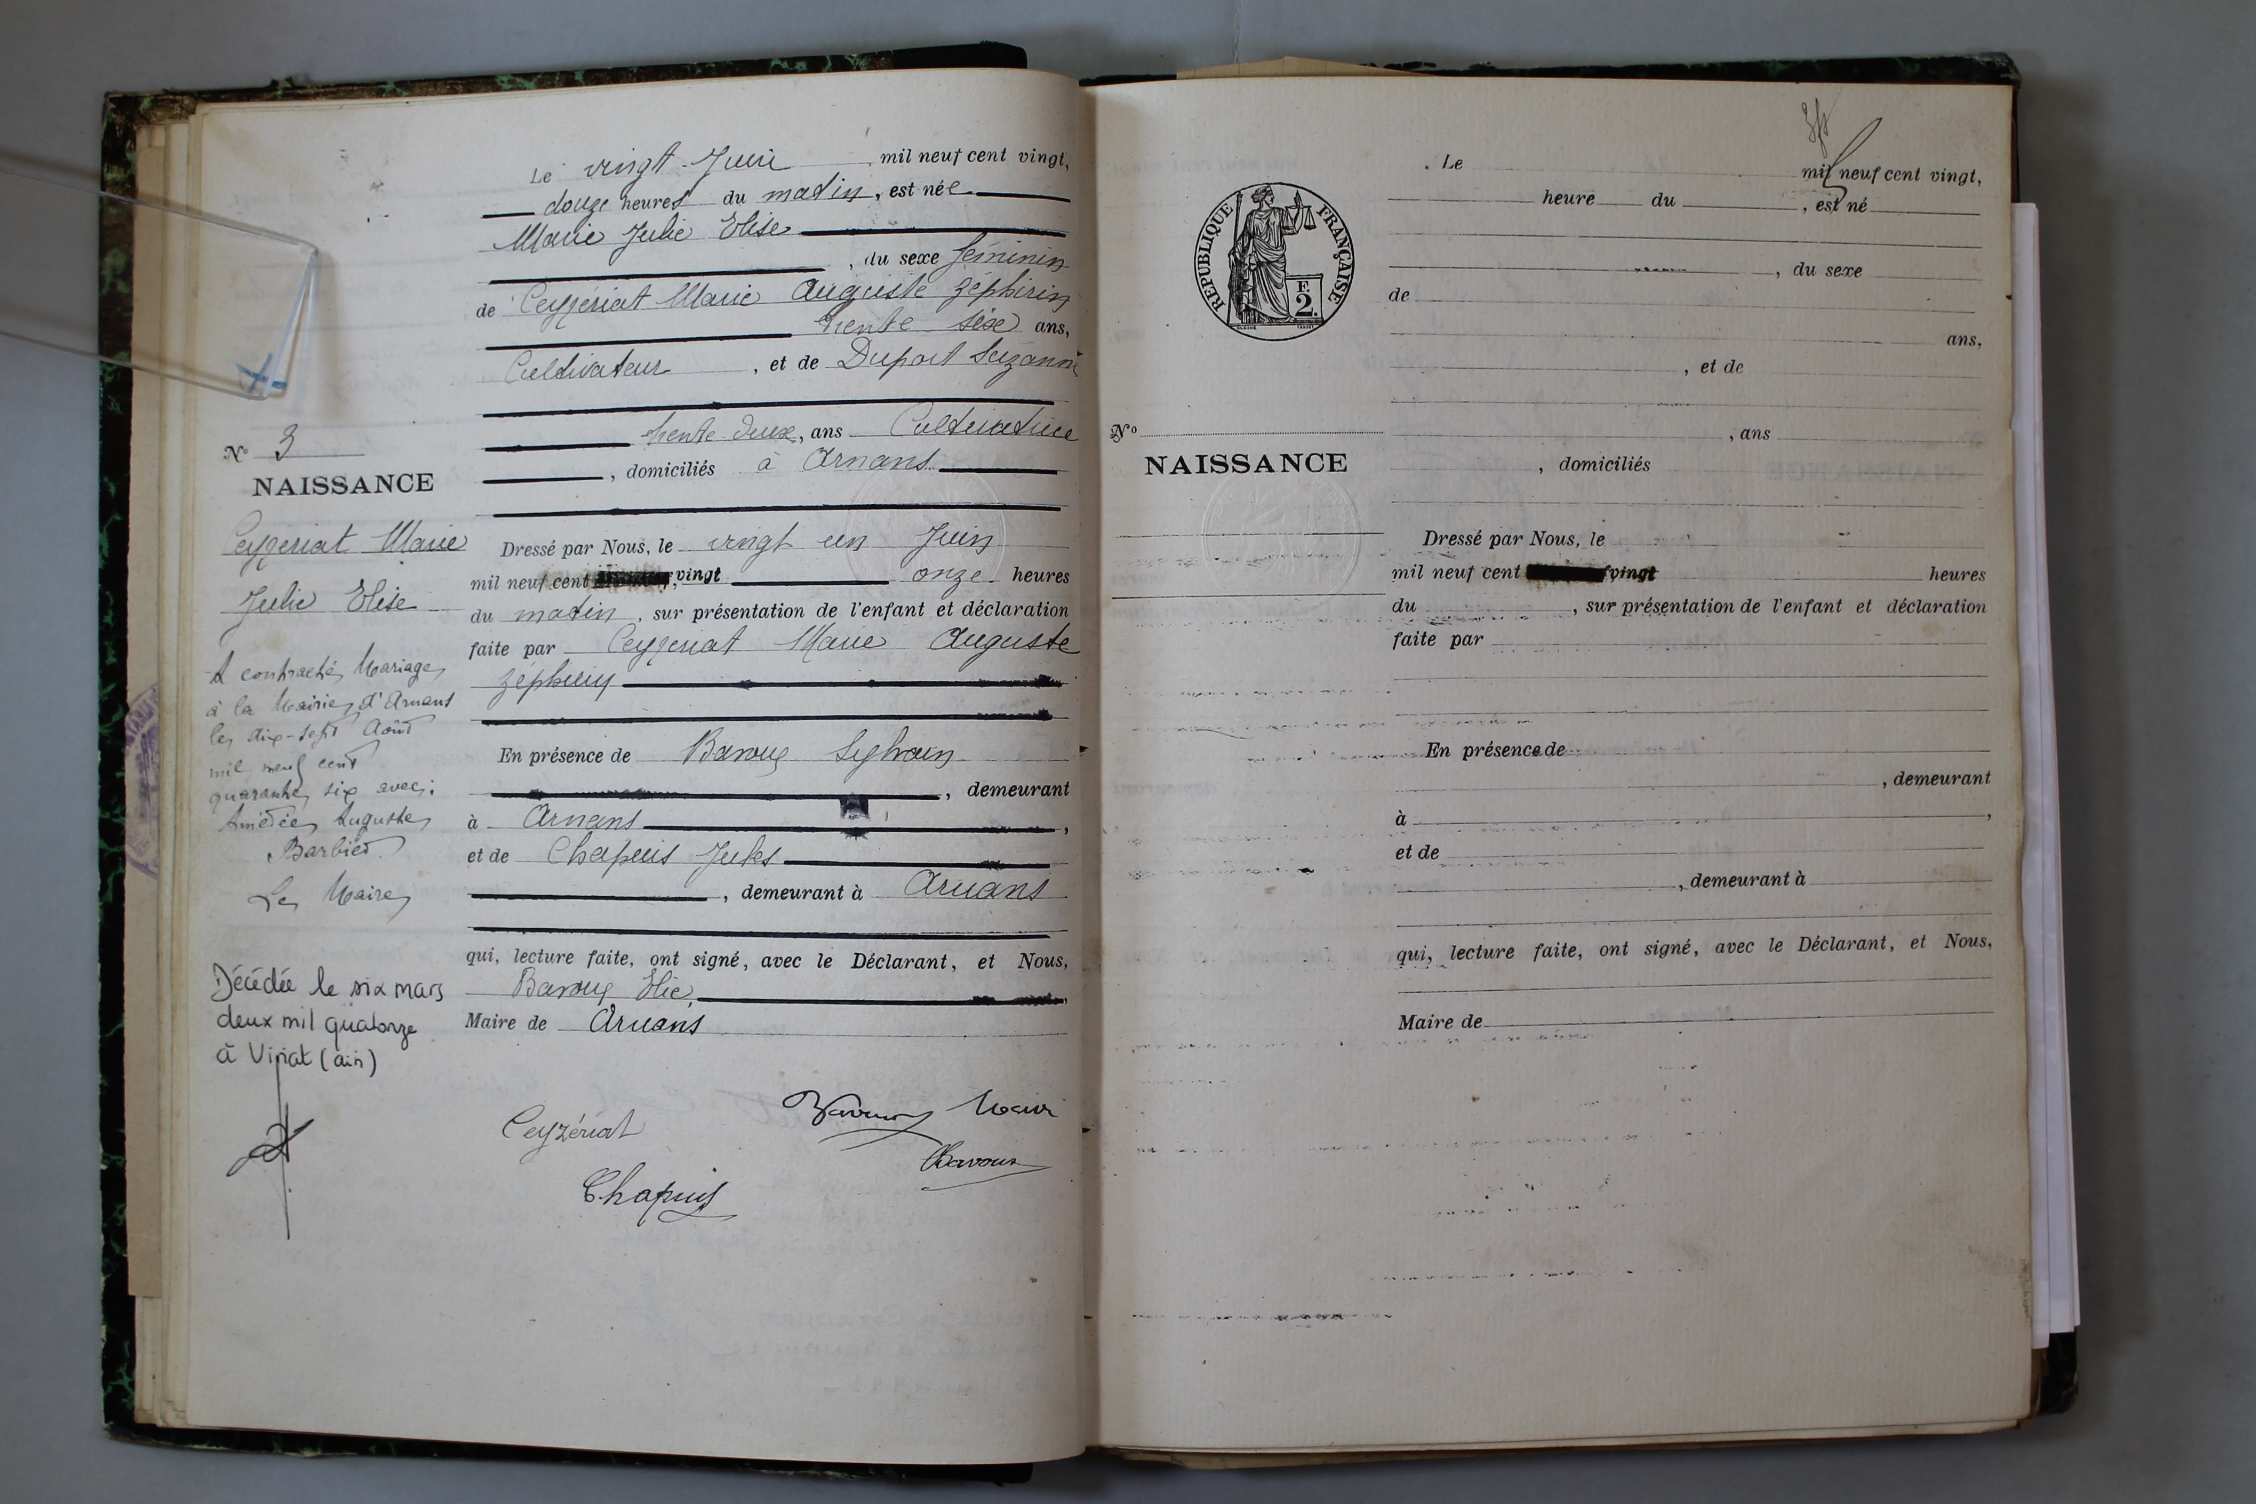 Le vingt Juin, mil neuf cent vingt,
douze heures du matin, est née
Marie Julie Elise
, du sexe féminin
de Ceyzériat Marie Auguste Zéphirin
trente six ans,
Cultivateur, et de Duport Suzanne
trente deux, ans Cultivatrice
, domiciliés à Arnans
Nº 3
NAISSANCE
Ceyzeriat Marie
Julie Elise
A contracté Mariage
à la Mairie d'Arnans
le dix-sept Août
mil neuf cent
quarante six avec :
Amédée Auguste
Barbier
Le Maire
Décédée le six mars
deux mil quatorze
à Viriat (ain)
Dressé par Nous, le vingt un Juin
mil neuf cent vingt onze heures
du matin, sur présentation de l'enfant et déclaration
faite par Ceyzeriat Marie Auguste
Zéphirin
En présence de Sylvain
, demeurant
à Arnans,
et de Chapuis Jules
, demeurant à Arnans
qui, lecture faite, ont signé, avec le Déclarant, et Nous,
Elie,
Maire de Arnans
Ceyzériat
Chapuis
Le mil neuf cent vingt,
heure du, est né
RÉPUBLIQUE FRANÇAISE
F.
2.
, du sexe
de
ans,
, et de
, ans
Nº
NAISSANCE
, domiciliés
Dressé par Nous, le
mil neuf cent vingt heures
du, sur présentation de l'enfant et déclaration
faite par
En présence de
, demeurant
à,
et de
, demeurant à
qui, lecture faite, ont signé, avec le Déclarant, et Nous,
Maire de